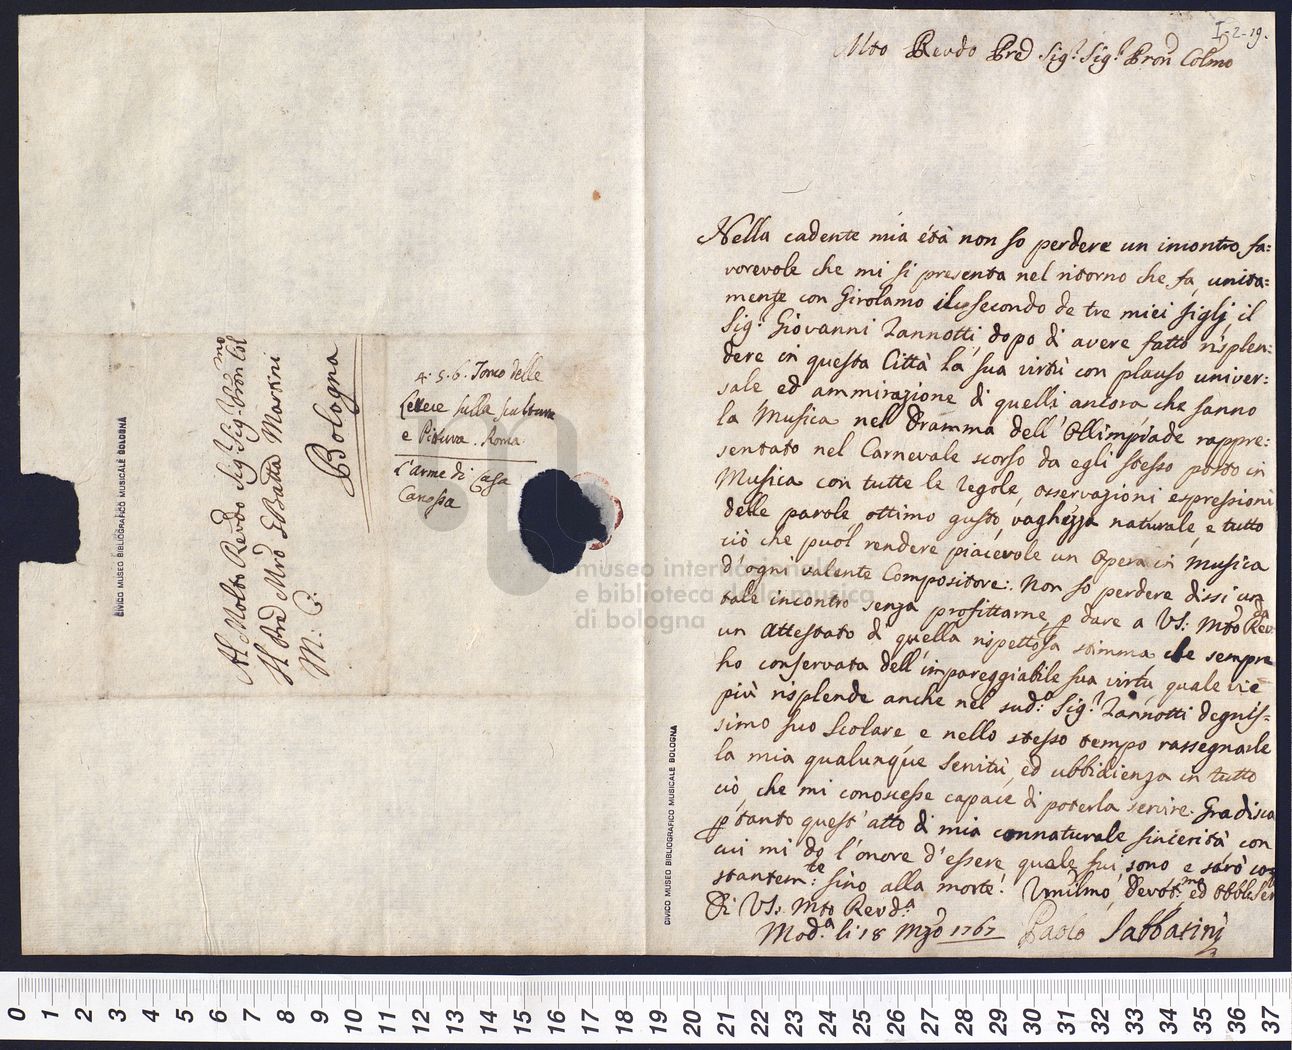 I-2-19.
Mto Revdo Pre Sig.r Sig.r Pron Colmo
Nella cadente mia età non so perdere un incontro fa=
vorevole che mi si presenta nel ritorno che fa, unita=
mente con Girolamo il secondo de tre miei figlj il
Sig.r Giovanni Zannotti, dopo di avere fatto risplen=
dere in questa Città la sua virtù con plauso univer=
sale ed ammirazione di quelli ancora che sanno
la Musica nel Dramma dell'Ollimpiade rappre=
sentato nel Carnevale scorso da egli stesso posto in
Musica con tutte le regole, osservazioni espressioni
delle parole ottimo gusto, vaghezza naturale, e tutto
ciò che puol rendere piacevole un Opera in Musica
d'ogni valente Compositore: Non so perdere dissi un
tale incontro senza profittarne, p dare a VS: Mto Revda
un Attestato di quella rispettosa stimma che sempre
ho conservata dell'impareggiabile sua virtù, quale vie
più risplende anche nel sud.o Sig.r Zannotti degnis=
simo suo Scolare e nello stesso tempo rassegnarle
la mia qualunque servitù, ed ubbidienza in tutto
ciò, che mi conoscesse capace di poterla servire. Gradisca
p tanto quest'atto di mia connaturale sincerità con
cui mi do l'onore d'essere quale fui, sono e sarò co=
stantem:te sino alla morte!
Di VS: Mto Revd.a
Umilmo, Devot.mo ed Obbl Ser
Mod.a li 18 Mzo 1767
Paolo Sabbatini
Al Molto Revdo Sig.r Sig.r Pron Colmo
Il Pre Mro GBatta Martini
M: C:
Bologna
4. 5. 6. Tomo delle
Lettere sulla scultura
e Pittura. Roma
L'arme di Casa
Canossa
CIVICO MUSEO BIBLIOGRAFICO MUSICALE BOLOGNA
CIVICO MUSEO BIBLIOGRAFICO MUSICALE BOLOGNA
museo internazionale
e biblioteca della musica
di bologna
0 1 2 3 4 5 6 7 8 9 10 11 12 13 14 15 16 17 18 19 20 21 22 23 24 25 26 27 28 29 30 31 32 33 34 35 36 37